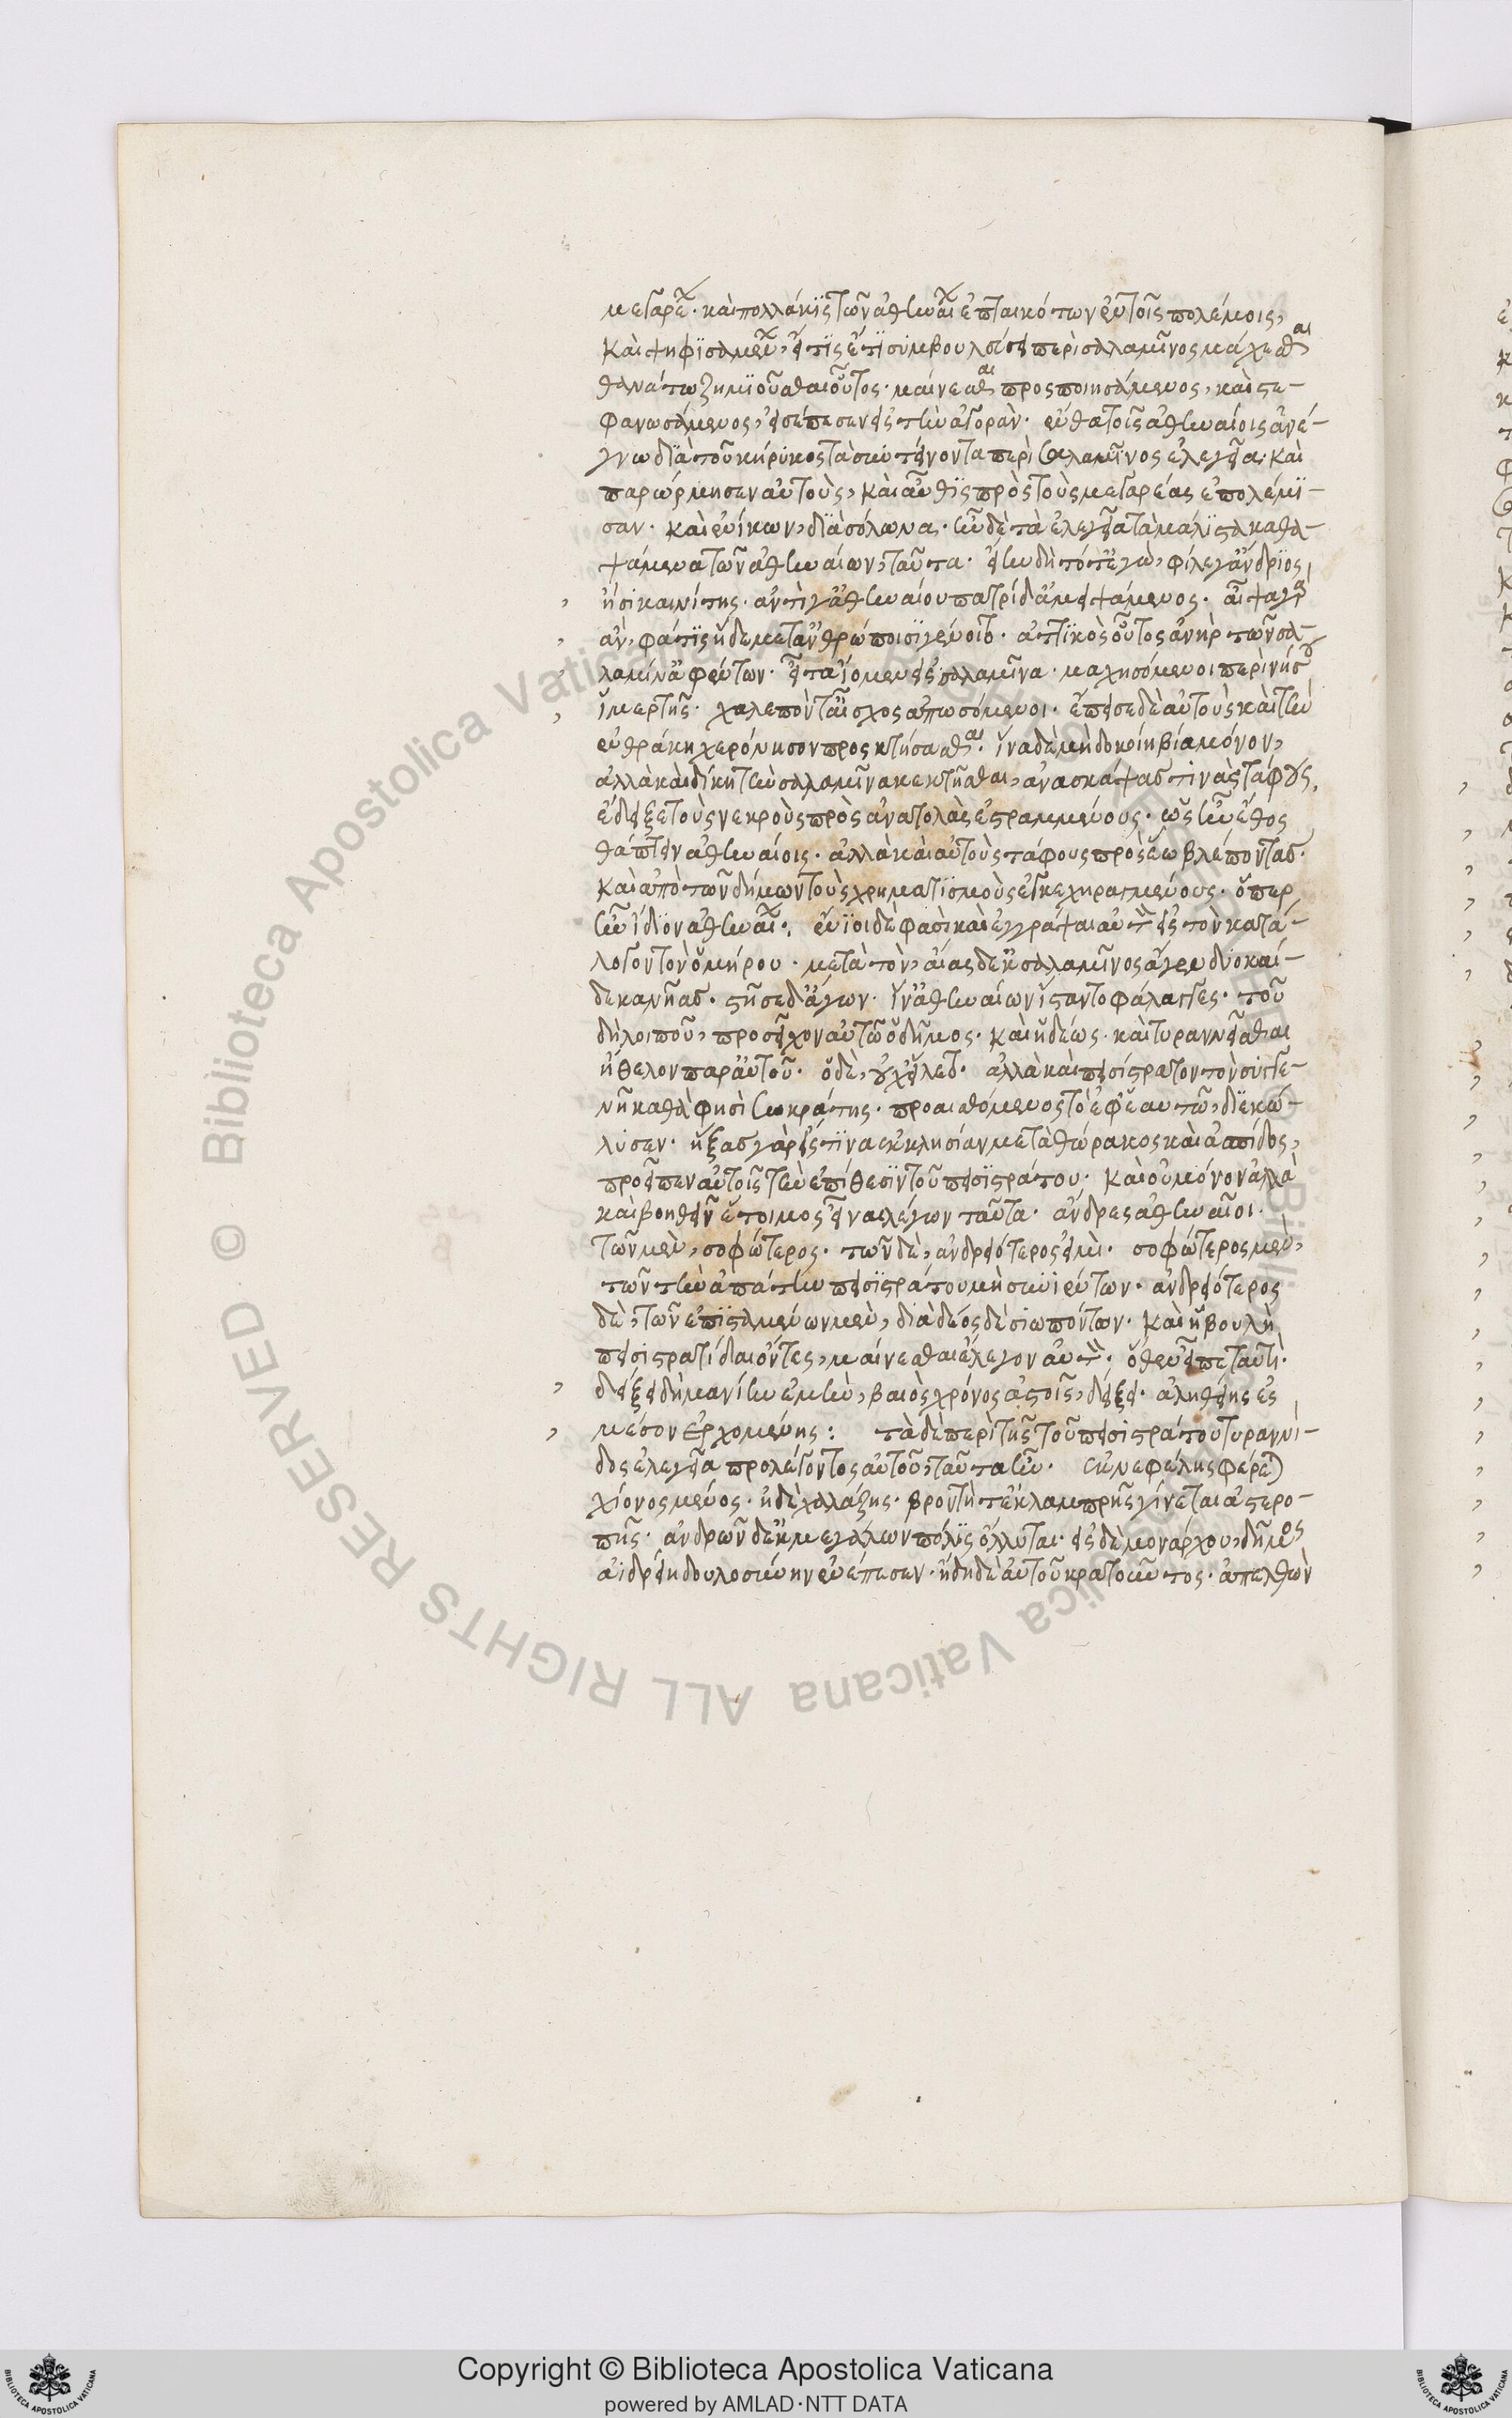 μεγαρεῖς. καὶ πολλάκις τῶν ἀθηναίων ἐπταικότων ἐν τοῖς πολέμοις,
καὶ ψηφισαμένων, εἴ τις ἔτι συμβουλεύσει περὶ σαλαμῖνος μάχεσθαι
θανάτω ζημιοῦσθαι οὗτος. μαίνεσθαι προσποιησάμενος, καὶ στε-
φανωσάμενος, εἰσέπεσεν εἰς τὴν ἀγοράν. ἔνθα τοῖς ἀθηναίοις ἀνέ-
γνω διὰ τοῦ κήρυκος τὰ συντείνοντα περὶ σαλαμῖνος ἐλεγεῖα. καὶ
παρώρμησεν αὐτοὺς, καὶ αὖθις πρὸς τοὺς μεγαρέας ἐπολέμη-
σαν. καὶ ἐνίκων, διὰ σόλωνα. ἦν δὲ τὰ ἐλεγεῖα τὰ μάλιστα καθα-
ψάμενα τῶν ἀθηναίων, ταῦτα. εἴην δὴ τότ' ἐγὼ, φιλεγάνδριος,
ἢ σικινίτης. ἀντί γ' ἀθηναίου πατρίδ' ἀμειψάμενος. αἶψα γὰρ
ἂν, φάτις ἥδε μετ' ἀνθρώποισι γένοιτο. ἀττικὸς οὗτος ἀνὴρ τῶν σα-
λαμιναφέντων. εἶτα ἴομεν εἰς σαλαμῖνα. μαχησόμενοι περὶ νήσου
ἱμερτῆς. χαλεπόν τ' αἶσχος ἀπωσόμενοι. ἔπεισε δὲ αὐτοὺς καὶ τὴν
ἐν θράκη χερόνησον προσκτήσασθαι. ἵνα δὲ μὴ δοκοίη βία μόνον,
ἀλλὰ καὶ δίκη τὴν σαλαμῖνα κεκτῆσθαι, ἀνασκάψας τινὰς τάφους,
ἔδειξε τοὺς νεκροὺς πρὸς ἀνατολὰς ἐστραμμένους. ὡς ἦν ἔθος
θάπτειν ἀθηναίοις. ἀλλὰ καὶ αὐτοὺς τάφους πρὸς ἕω βλέποντας.
καὶ ἀπὸ τῶν δήμων τοὺς χρηματισμοὺς ἐγκεχηραγμένους. ὅπερ
ἦν ἴδιον ἀθηναίων. ἔνιοι δέ φασι καὶ ἐγγράψαι αὐτὸν εἰς τὸν κατά-
λογον τὸν ὁμήρου. μετὰ τὸν, αἴας δ' ἐκ σαλαμῖνος ἄγεν δυοκαί-
δεκα νῆας. στῆσε δ' ἄγων. ἵν' ἀθηναίων ἵσταντο φάλαγγες. τοῦ
δὴ λοιποῦ, προσεῖχον αὐτῶ ὁ δῆμος. καὶ ἡδέως. καὶ τυραννεῖσθαι
ἤθελον παρ' αὐτοῦ. ὁ δὲ, οὐχ εἵλετο. ἀλλὰ καὶ πεισίστρατον τὸν συγγε-
νῆ καθά φησι σωκράτης. προαισθόμενος τὸ ἐφ' ἑαυτῶ, διεκώ-
λυσεν. ἥξας γὰρ εἴς τινα ἐκκλησίαν μετὰ θώρακος καὶ ἀσπίδος,
προεῖπεν αὐτοῖς τὴν ἐπίθεσιν τοῦ πεισιστράτου. καὶ οὐ μόνον ἀλλὰ
καὶ βοηθεῖν ἕτοιμος εἶναι λέγων ταῦτα. ἄνδρες ἀθηναῖοι.
τῶν μὲν, σοφώτερος. τῶν δὲ, ἀνδρειότερός εἰμι. σοφώτερος μὲν,
τῶν τὴν ἀπάτην πεισιστράτου μὴ συνιέντων. ἀνδρειότερος
δὲ, τῶν ἐπισταμένων μὲν, διὰ δέος δὲ σιωπόντων. καὶ ἡ βουλὴ
πεισιστρατίδαι ὄντες, μαίνεσθαι ἔλεγον αὐτόν. ὅθεν εἶπε ταυτί.
δείξει δὴ μανίην ἐμὴν, βαιὸς χρόνος ἀστοῖς, δείξει. ἀληθείης ἐς
μέσον ἐρχομένης: τὰ δὲ περὶ τῆς τοῦ πεισιστράτου τυραννί-
δος ἐλεγεῖα προλέγοντος αὐτοῦ, ταῦτα ἦν. ἐκ νεφέλης φέρεται
χίονος μένος. ἠδὲ χαλάζης. βροντὴ τ' ἐκ λαμπρῆς γίνεται ἀστερο-
πῆς. ἀνδρῶν δ' ἐκ μεγάλων πόλις ὄλλυται. εἰς δὲ μονάρχου, δῆμος
ἀιδρείη δουλοσύνην ἐνέπεσεν. ἤδη δὲ αὐτοῦ κρατοῦντος. ἀπελθὼν
Copyright © Biblioteca Apostolica Vaticana
powered by AMLAD·NTT DATA